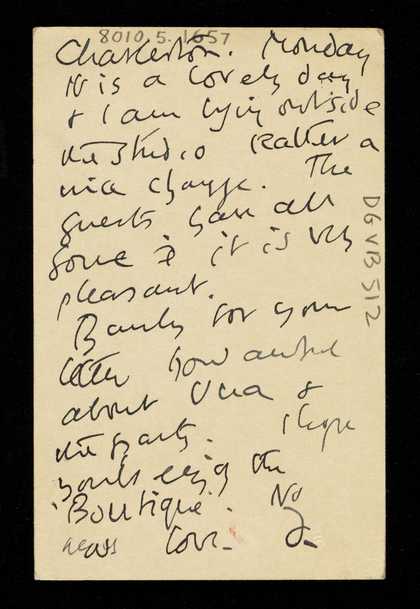 8010.5.1657
Charleston. Monday
It is a lovely day
& I am lying outside
the studio Rather a
nice change. The
guests have all
gone & it is very
pleasant.
for your
letter how awful
about Una &
the party. I hope
you'll enjoy the
'Boutique'. No
Love
D.
DGVB 512